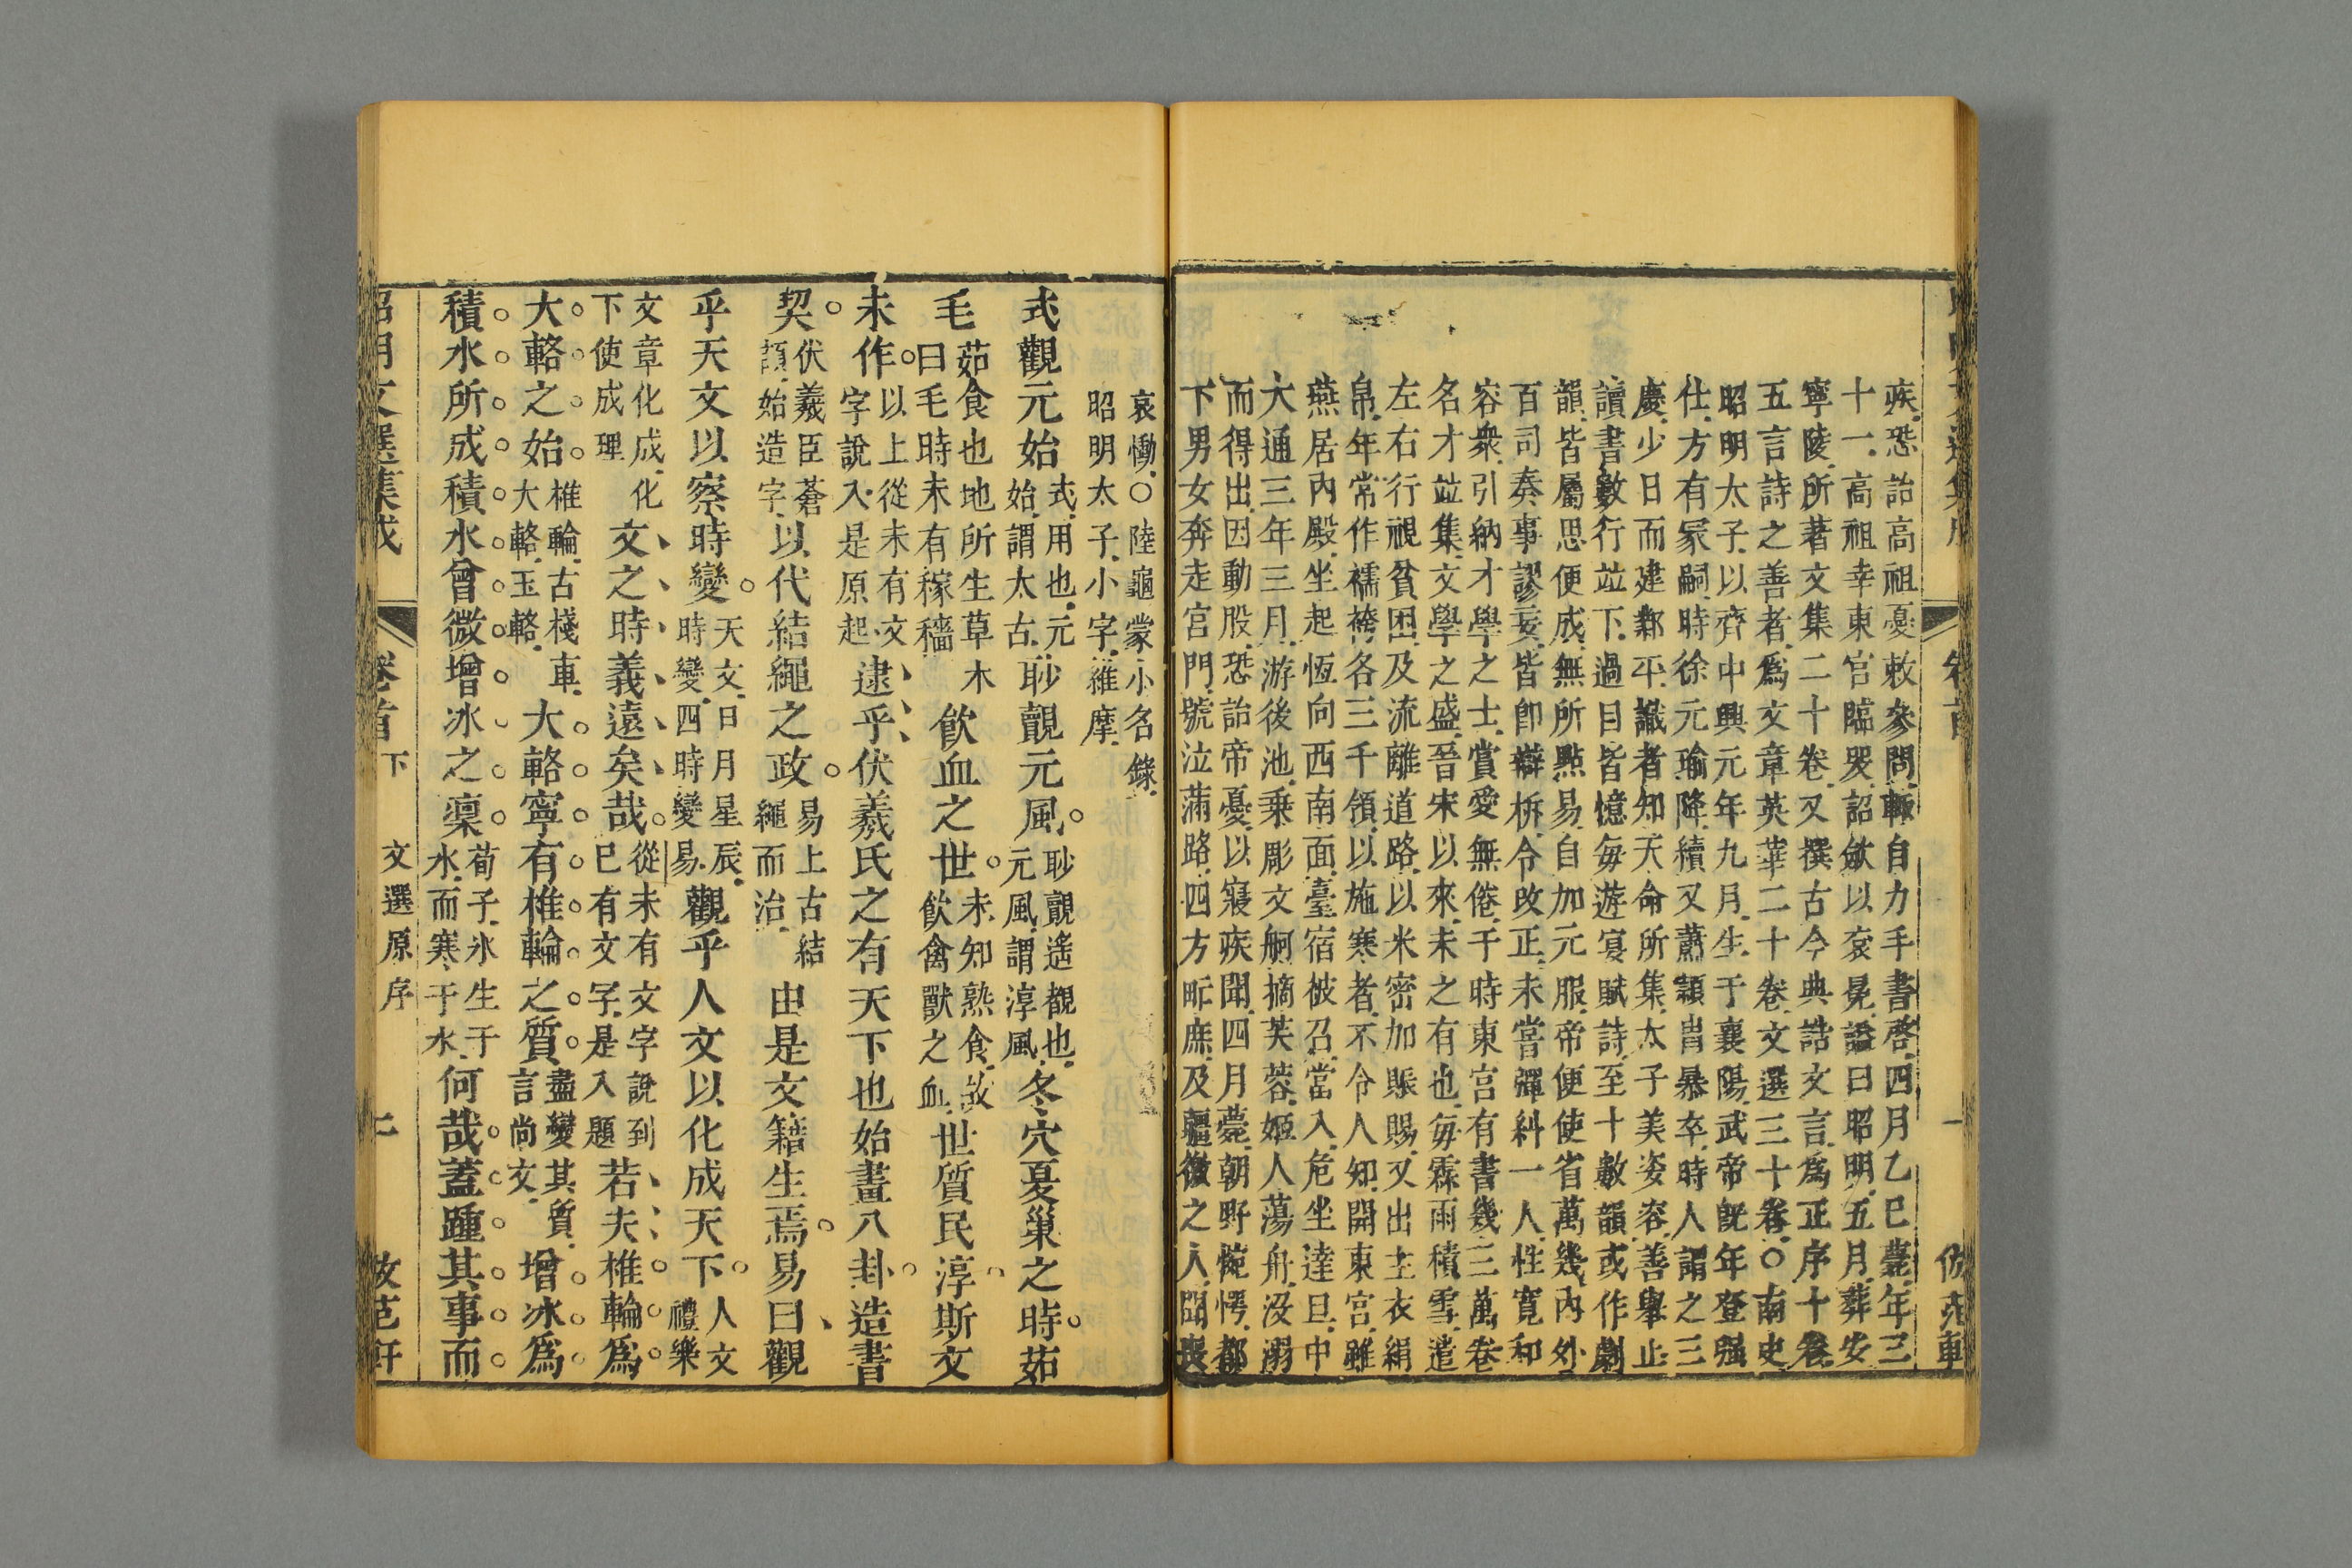 疾恐詒高祖憂敕參問輒自力手書啓四月乙巳薨年三
十一高祖幸東宮臨哭詔斂以衮冕謚曰昭明五月葬安
寧陵所著文集二十卷又撰古今典誥文言爲正序十卷
五言詩之善者爲文章英華二十卷文選三十卷○南史
昭明太子以齊中興元年九月生于襄陽武帝旣年登强
仕方有冢嗣時徐元瑜降續又蕭穎胄暴卒時人謂之三
慶少日而建鄴平識者知天命所集太子美姿容善舉止
讀書數行竝下過目皆憶每遊宴賦詩至十數韻或作劇
韻皆屬思便成無所點易自加元服帝便使省萬幾內外
百司奏事謬妄皆卽辯析令改正未嘗彈糾一人性寬和
容衆引納才學之士賞愛無倦于時東宮有書幾三萬卷
名才竝集文學之盛晉宋以來未之有也每霖雨積雪遣
左右行視貧困及流離道路以米密加賑賜又出主衣絹
帛年常作襦袴各三千領以施寒者不令人知開東宮雖
燕居內殿坐起恆向西南面臺宿被召當入危坐達旦中
大通三年三月游後池乘彫文舸摘芙蓉姬人蕩舟沒溺
而得出因動股恐詒帝憂以寢疾聞四月薨朝野惋愕都
下男女奔走宮門號泣滿路四方甿庶及疆徼之人聞喪
卷首
哀慟○陸龜蒙小名錄
昭明太子小字維摩
式觀元始式用也元始謂太古眇覿元風眇覿遙覩也元風謂淳風冬穴夏巢之時茹
毛茹食也地所生草木曰毛時未有稼穡飮血之世未知熟食故飮禽獸之血世質民淳斯文
未作以上從未有文字說入是原起逮乎伏羲氏之有天下也始畫八卦造書
契伏羲臣蒼頡始造字以代結繩之政易上古結繩而治由是文籍生焉易曰觀
乎天文以察時變天文日月星辰時變四時變易觀乎人文以化成天下人文禮樂
文章化成化下使成理文之時義遠矣哉從未有文字說到已有文字是入題若夫椎輪爲
大輅之始椎輪古棧車大輅玉輅大輅寧有椎輪之質盡變其質言尚文增冰爲
積水所成積水曾微增冰之凜荀子氷生于水而寒于水何哉蓋踵其事而
昭明文選集成 卷首下 文選原序 二